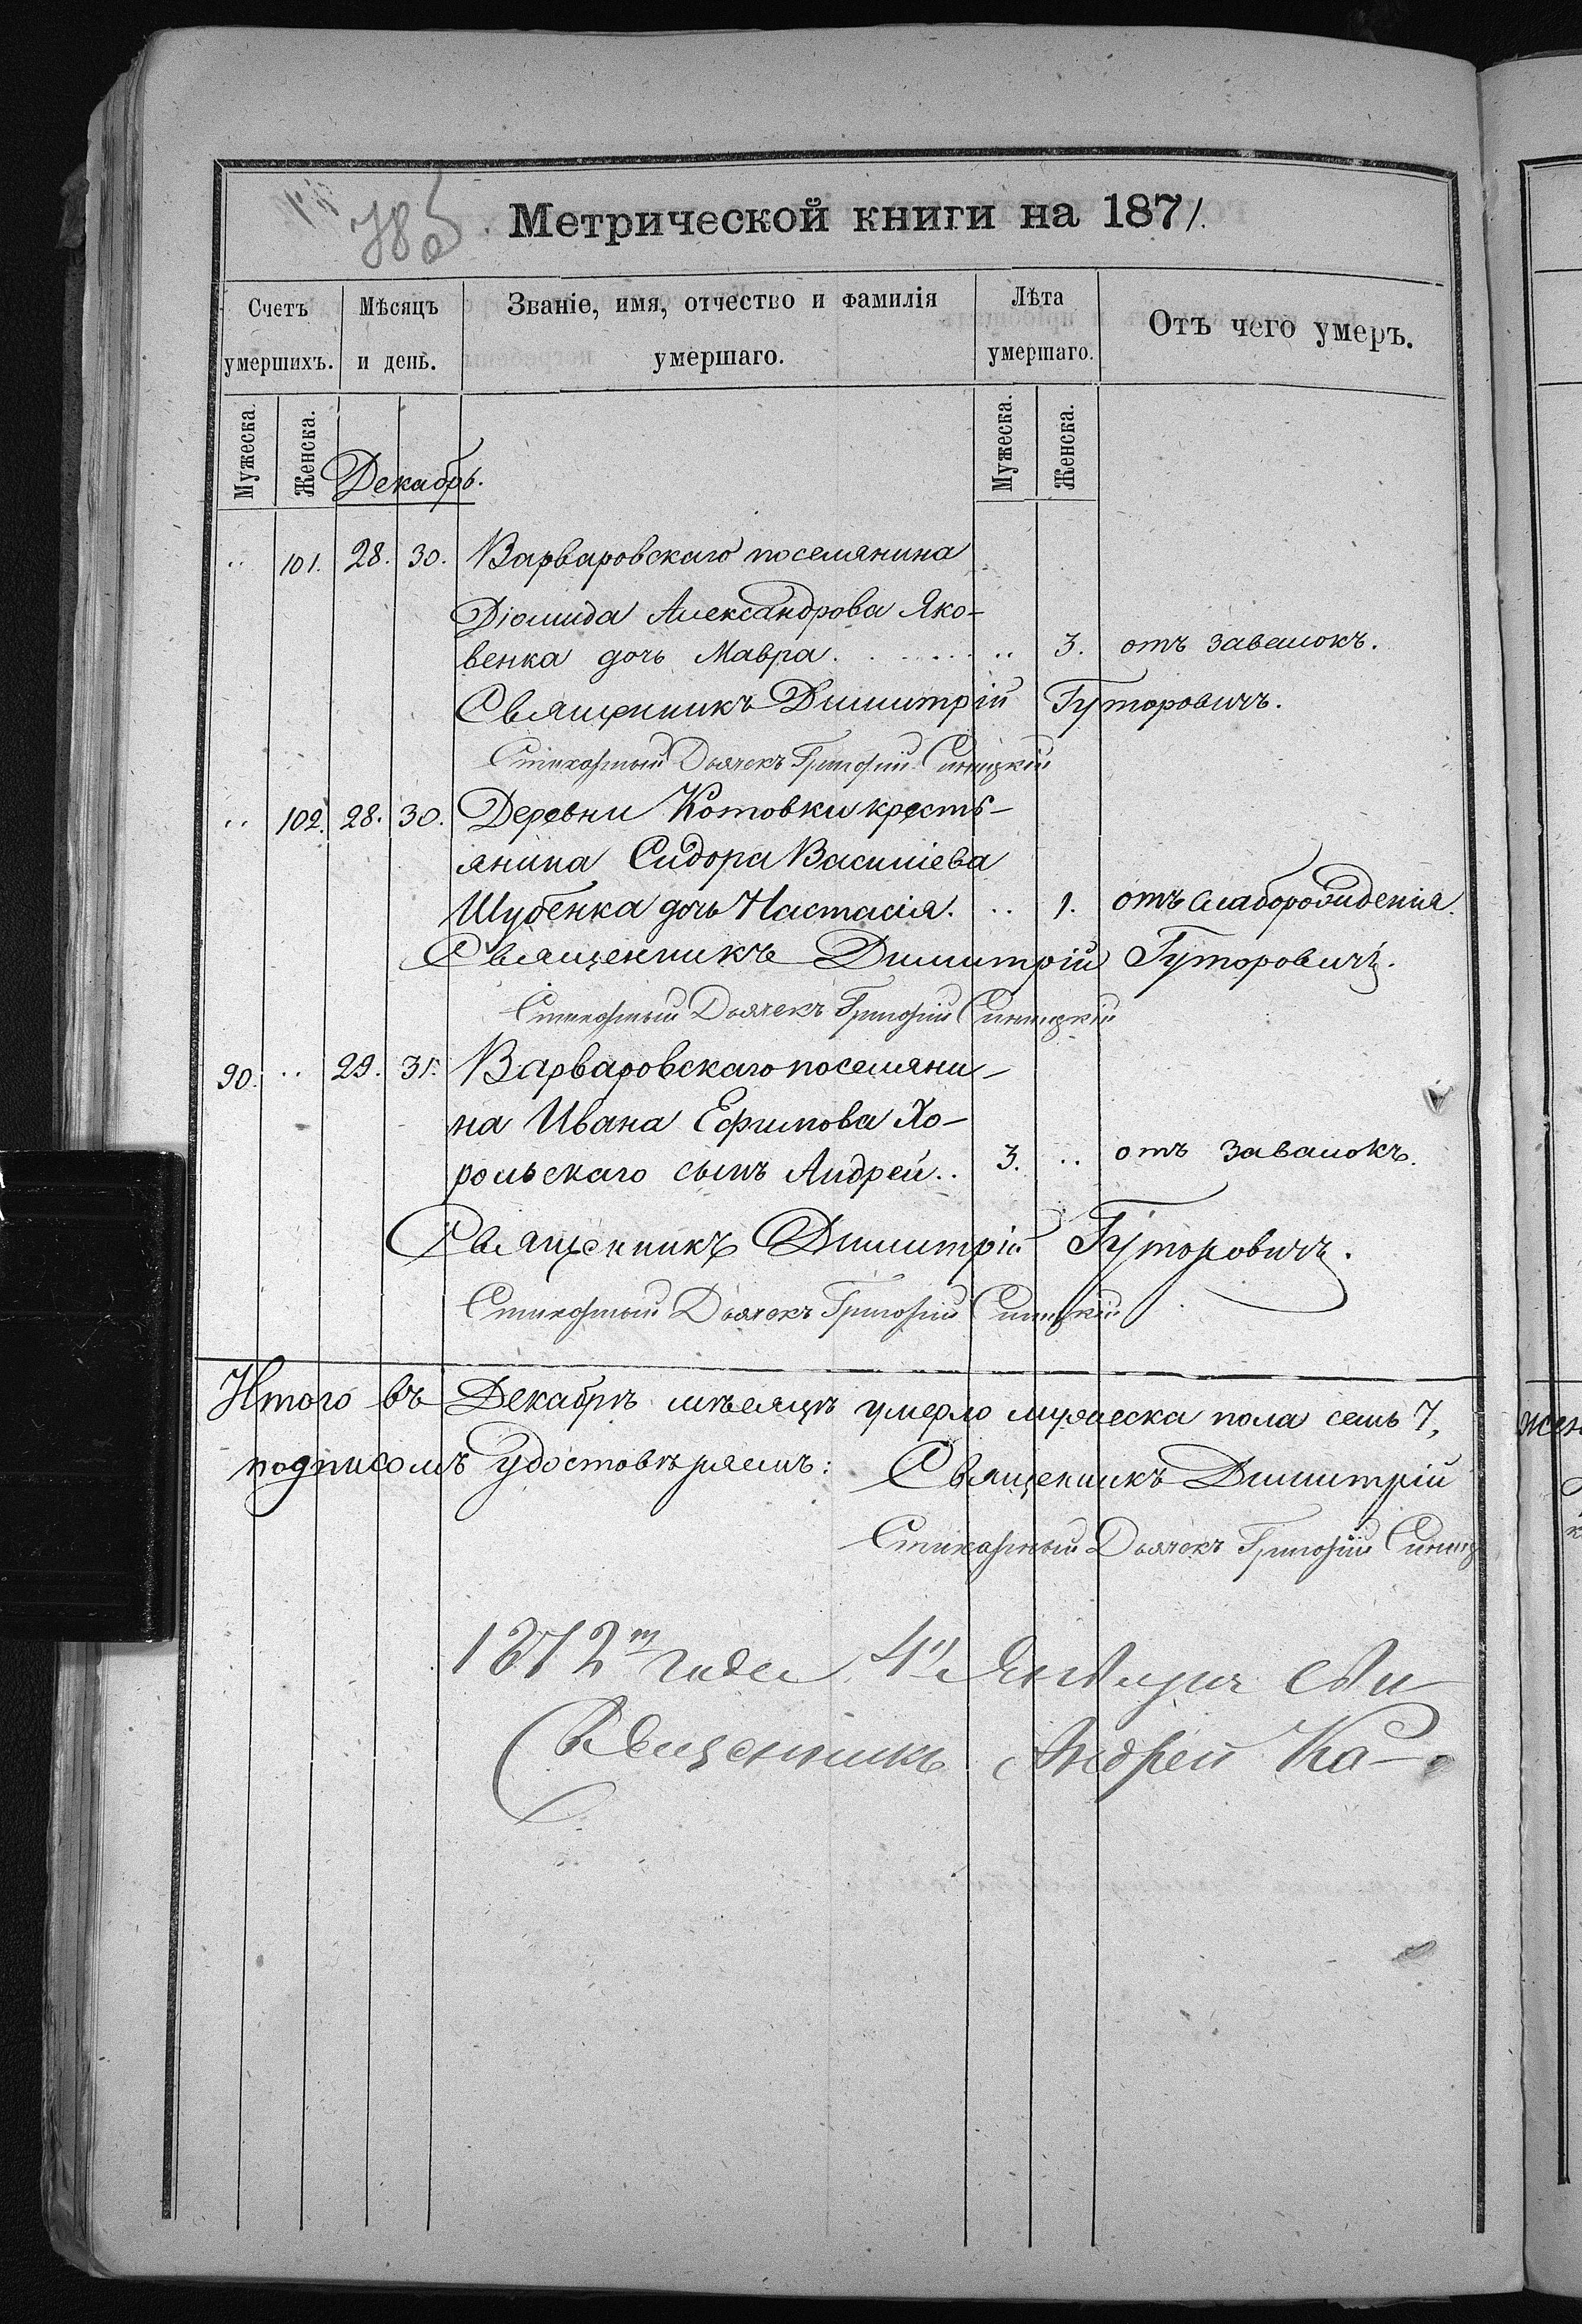 785
Метрической книги на 1871.
Счетъ умершихъ. Мѣсяцъ и день. Званіе, имя, отчество и фамилія умершаго. Лѣта умершаго. Отъ чего умеръ.
Мужеска. Женска. Мужеска. Женска.
Декабрь.
" 101. 28. 30. Варваровскаго поселянина
Діомида Александрова Яко-
венка дочь Мавра. " 3. отъ завалокъ.
Священникъ Димитрій Гуторовичъ.
Стихарный Дьячекъ Григорій Синицкій
" 102. 28. 30. Деревни Котовки кресть-
янина Сидора Василіева
Шубенка дочь Настасія. " 1. отъ слаборожденія.
Священникъ Димитрій Гуторовичъ.
Стихарный Дьячекъ Григорій Синицкій
90. " 29. 31. Варваровскаго поселяни-
на Ивана Ефимова Хо-
рольскаго сынъ Андрей. 3. " отъ завалокъ.
Священникъ Димитрій Гуторовичъ.
Стихарный Дьячекъ Григорій Синицкій
Итого въ Декабрѣ мѣсяцѣ умерло мужеска пола семь 7,
подписомъ удостовѣряемъ: Священникъ Димитрій
Стихарный Дьячекъ Григорій Синиц
1872 года 4 Января
Священникъ Андрей Ка-